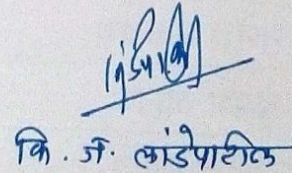 कि. जे. लांडेपाटील